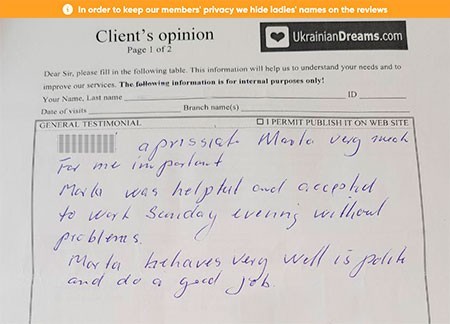 In order to keep our members' privacy we hide ladies' names on the reviews
Client's opinion
UkrainianDreams.com
Page 1 of 2
Dear Sir, please fill in the following table. This information will help us to understand your needs and to
improve our services. The following information is for internal purposes only!
Your Name, Last name ID
Date of visits Branch name(s)
GENERAL TESTIMONIAL I PERMIT PUBLISH IT ON WEB SITE
aprissiate Marla very much
For me important
Marla was helpful and accepted
to work Sunday evening without
problems.
Marla behaves very well is polite
and do a good job.